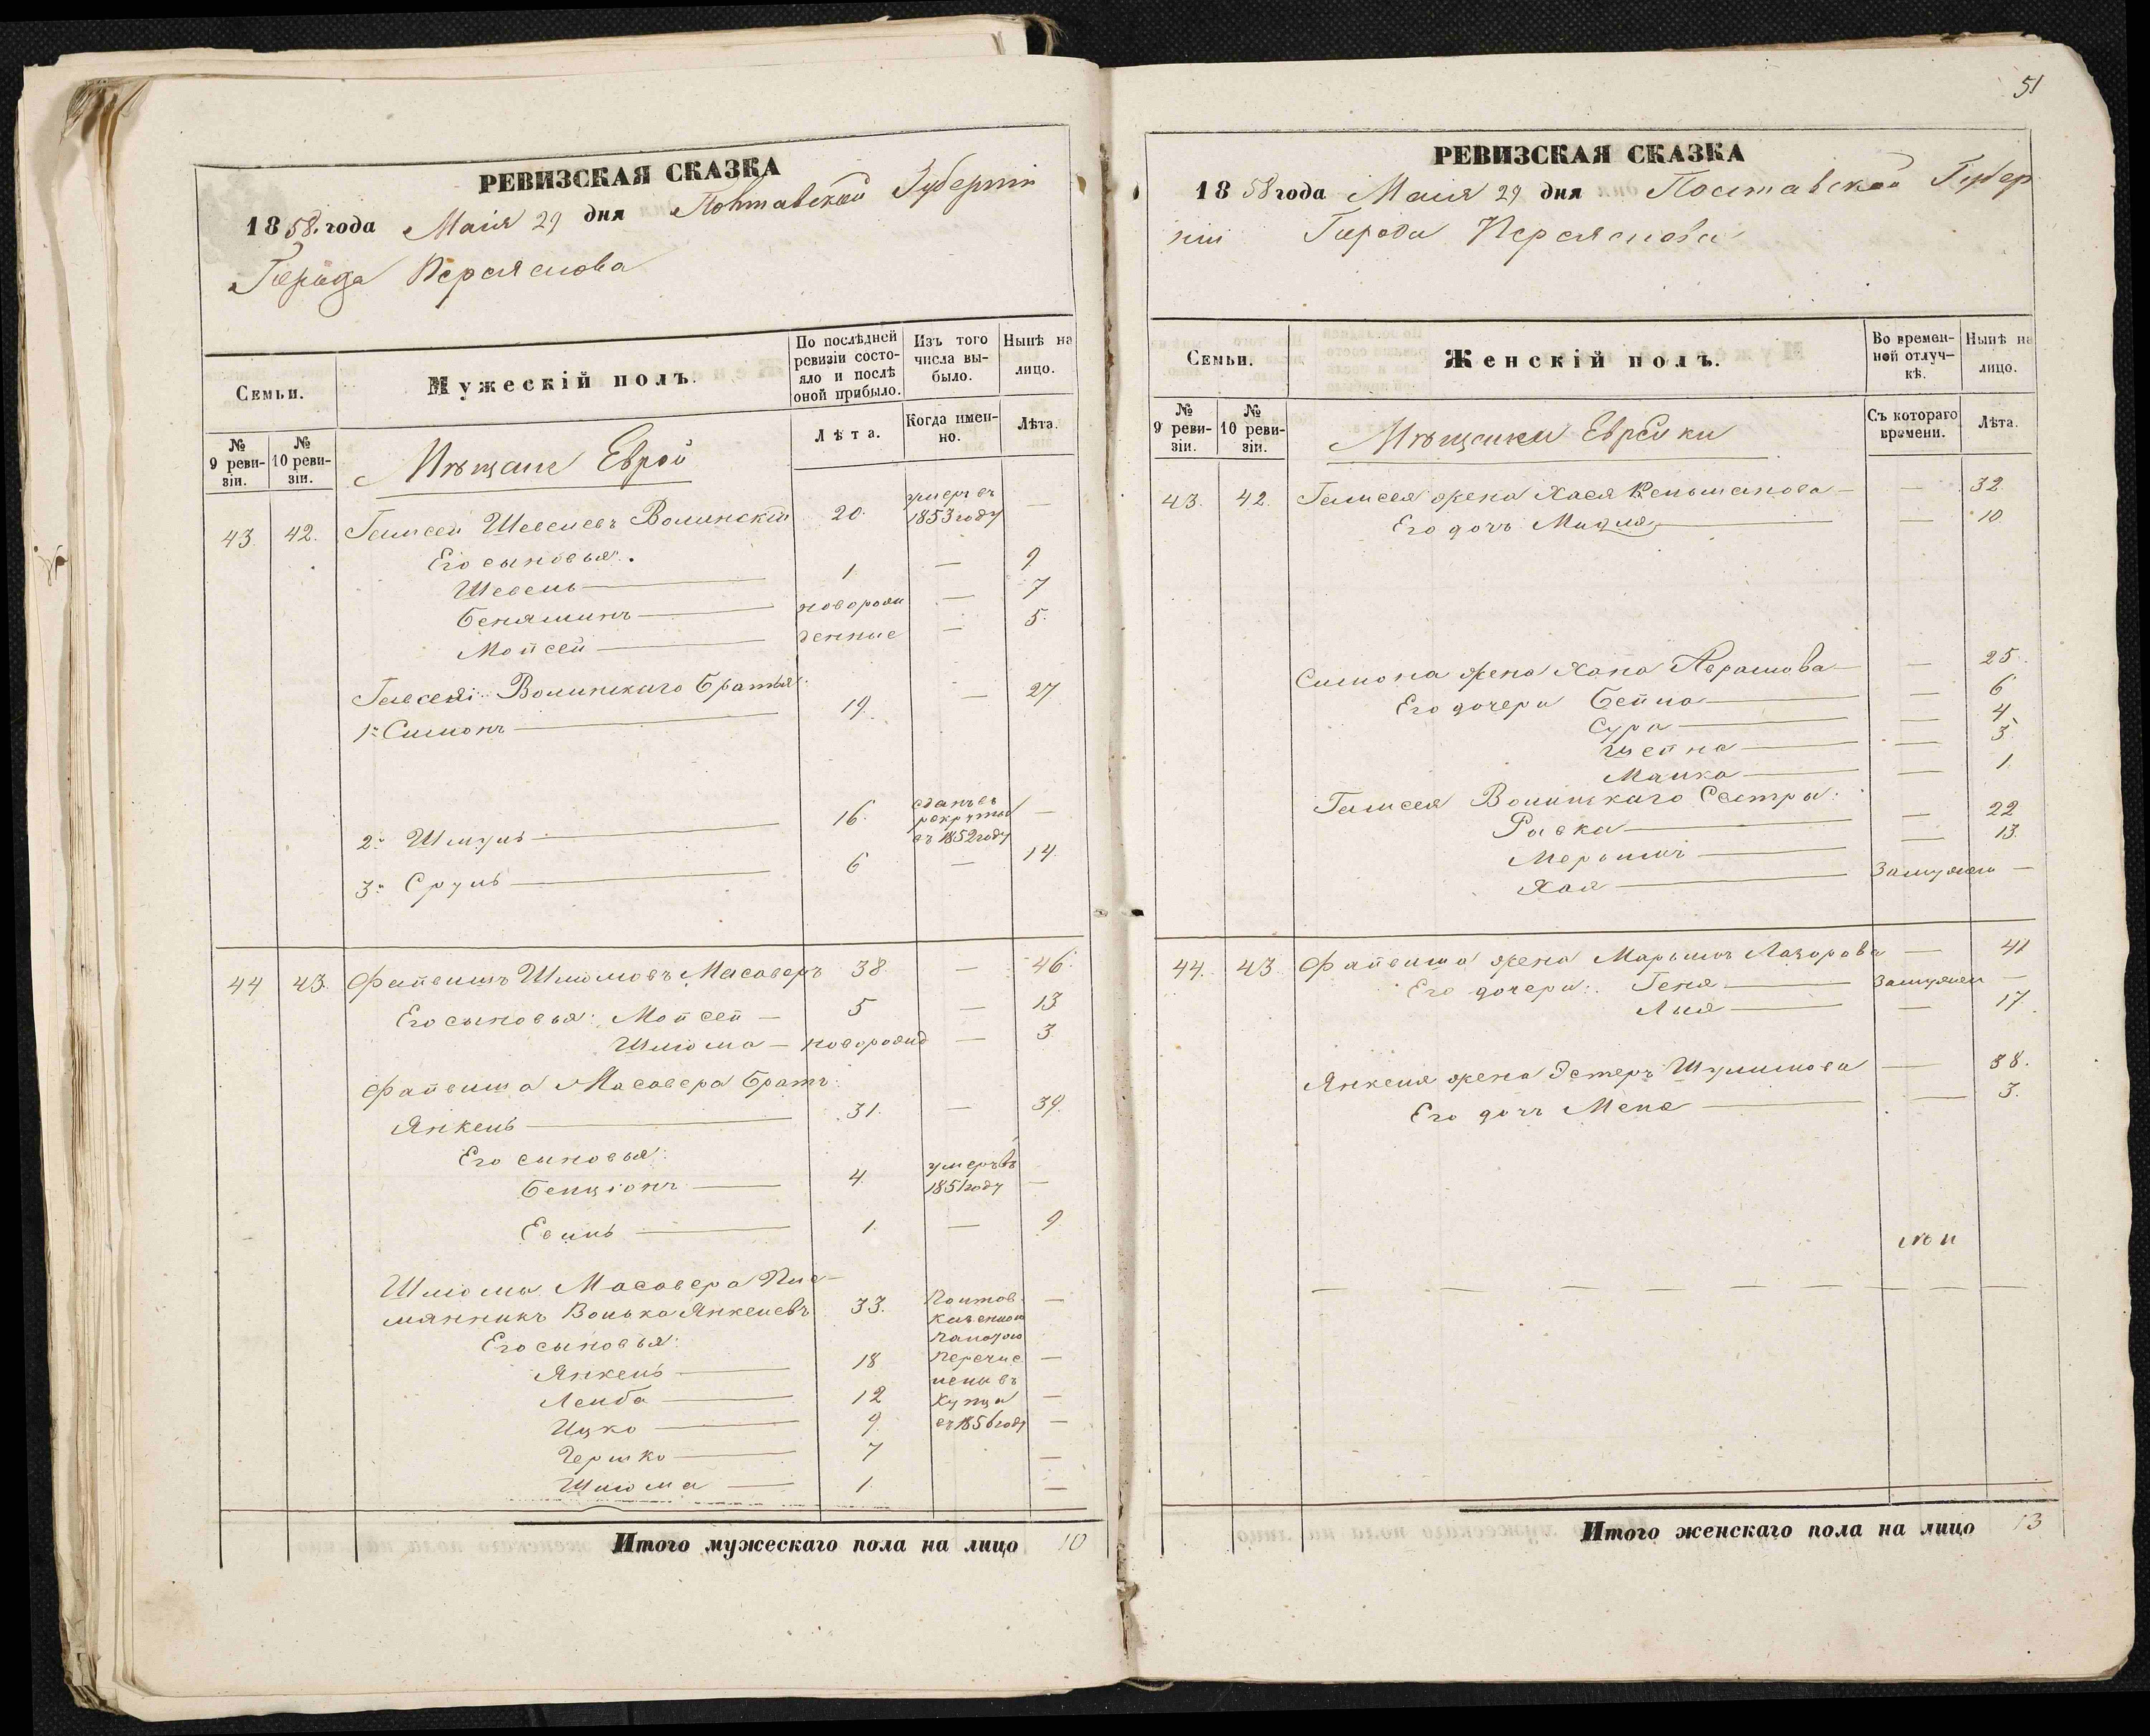 РЕВИЗСКАЯ СКАЗКА
1858. года Маія 29 дня Полтавской Губерніи
Города Переяслова
Семьи.
Мужескій полъ.
По послѣдней ревизіи состояло и послѣ оной прибыло.
Изъ того числа выбыло.
Нынѣ на лицо.
№ 9 ревизіи.
№ 10 ревизіи.
Мѣщане Евреи
Лѣта.
Когда именно.
Лѣта.
43. 42. Шевелевъ Волинскій 20. умеръ въ 1853 году —
Его сыновья:
Шевель — 1. — 9
Беняминъ — новорож — 7
Мойсей — денные — 5.
Волинскаго Братья:
1й Симонъ — 19. — 27
2й Шмуль — 16. сданъ въ рекруты въ 1852 году —
3й Сруль — 6 — 14.
44 43. Файвишъ Шлиомовъ Масаверъ 38. — 46.
Его сыновья: Мойсей — 5 — 13
Шлиома — новорожд — 3
Файвиша Масавера Братъ:
Янкель — 31. — 39.
Его сыновья:
Бенціонъ — 4. умеръ въ 1851 году —
Евель — 1. — 9
Шлиомы Масавера Пле-
мянникъ Волько Янкелевъ 33. —
Его сыновья:
Янкель — 18 Перечис —
Лейба — 12 лены въ —
Ицко — 9. Купцы —
Гершко — 7 въ 1856 году —
Шлиома — 1. —
Итого мужескаго пола на лицо 10
51
РЕВИЗСКАЯ СКАЗКА
1858 года Маія 29 дня Полтавской Губер
ніи Города Переяслова
Семьи.
Женскій полъ.
Во временной отлучкѣ.
Нынѣ на лицо.
№ 9 ревизіи.
№ 10 ревизіи.
Мѣщанки Еврейки
Съ котораго времени.
Лѣта.
43. 42. жена Хася — 32.
Его дочь — 10.
Симона жена Хана Абрамова — 25.
Его дочери Бейла — 6
Сура — 4
Шейна — 3
Малка — 1.
Волинскаго Сестры:
Рывка — 22
Мерьямъ — 13.
Хая — Замужемъ —
44. 43 Файвиша жена Марьямъ Лазорова — 41
Его дочери: Геня — Замужемъ —
Лия — 17.
Янкеля жена Эстеръ Шулимова — 38.
Его дочь Мена — 3.
Итого женскаго пола на лицо 13